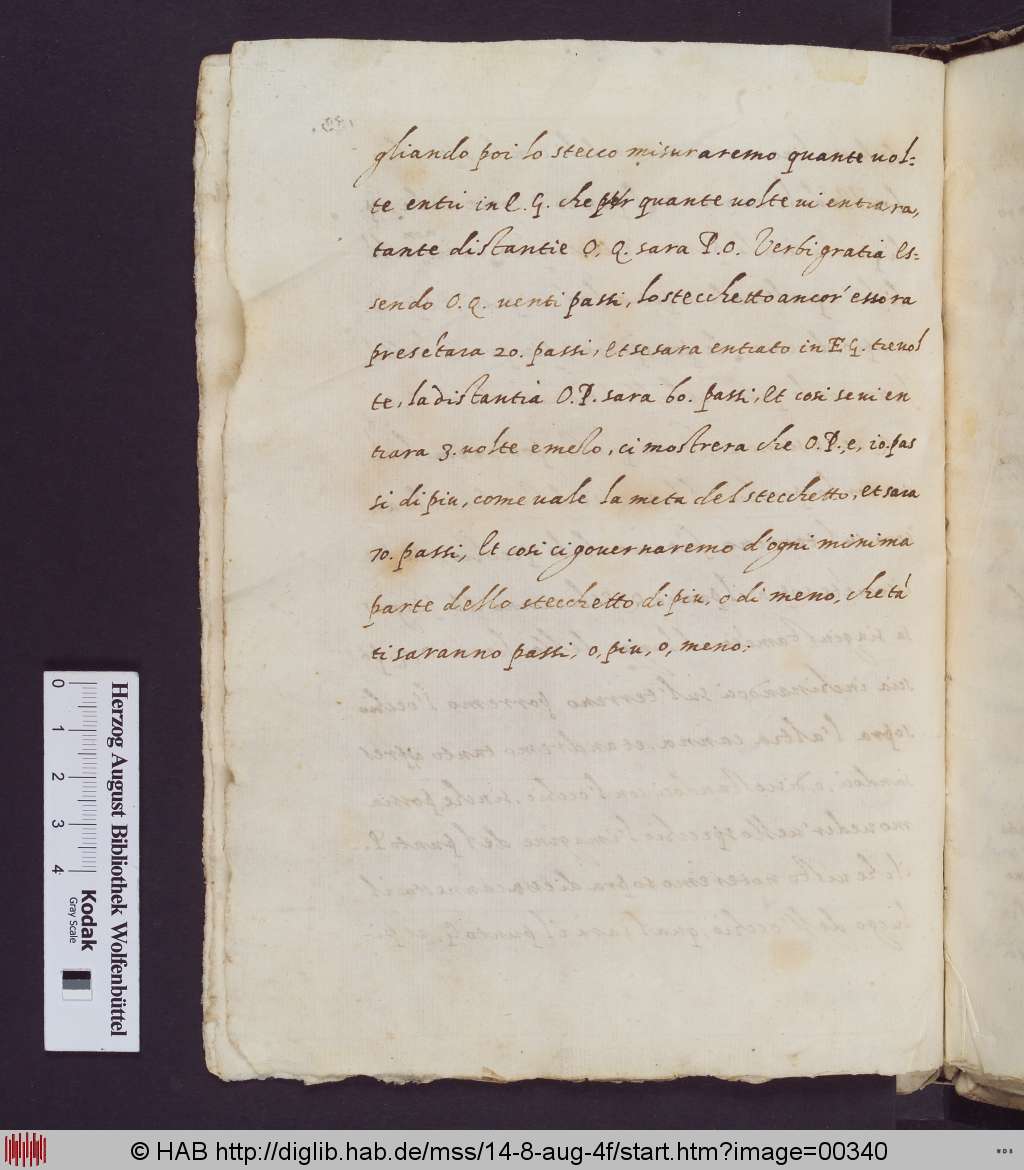 gliando poi lo stecco misuraremo quante uol=
te entri in E. G. che per quante uolte ui entrara,
tante distantie O. Q. sara P. O. Verbi gratia Es=
sendo O. Q. uenti passi, lo stecchetto ancor' esso ra
presētara 20. passi, Et se sara entrato in E G. tre uol
te, la distantia O. P. sara 60. passi, Et cosi se ui en
trara 3. uolte e meso, ci mostrera che O. P., e, 10. pas
si di piu, come uale la meta del stecchetto, et sara
70. passi, Et cosi ci gouernaremo d'ogni minima
parte dello stecchetto di piu, o di meno, che tā
ti saranno passi, o, piu, o, meno.
0 1 2 3 4
Herzog August Bibliothek Wolfenbüttel
Kodak
Gray Scale
© HAB http://diglib.hab.de/mss/14-8-aug-4f/start.htm?image=00340